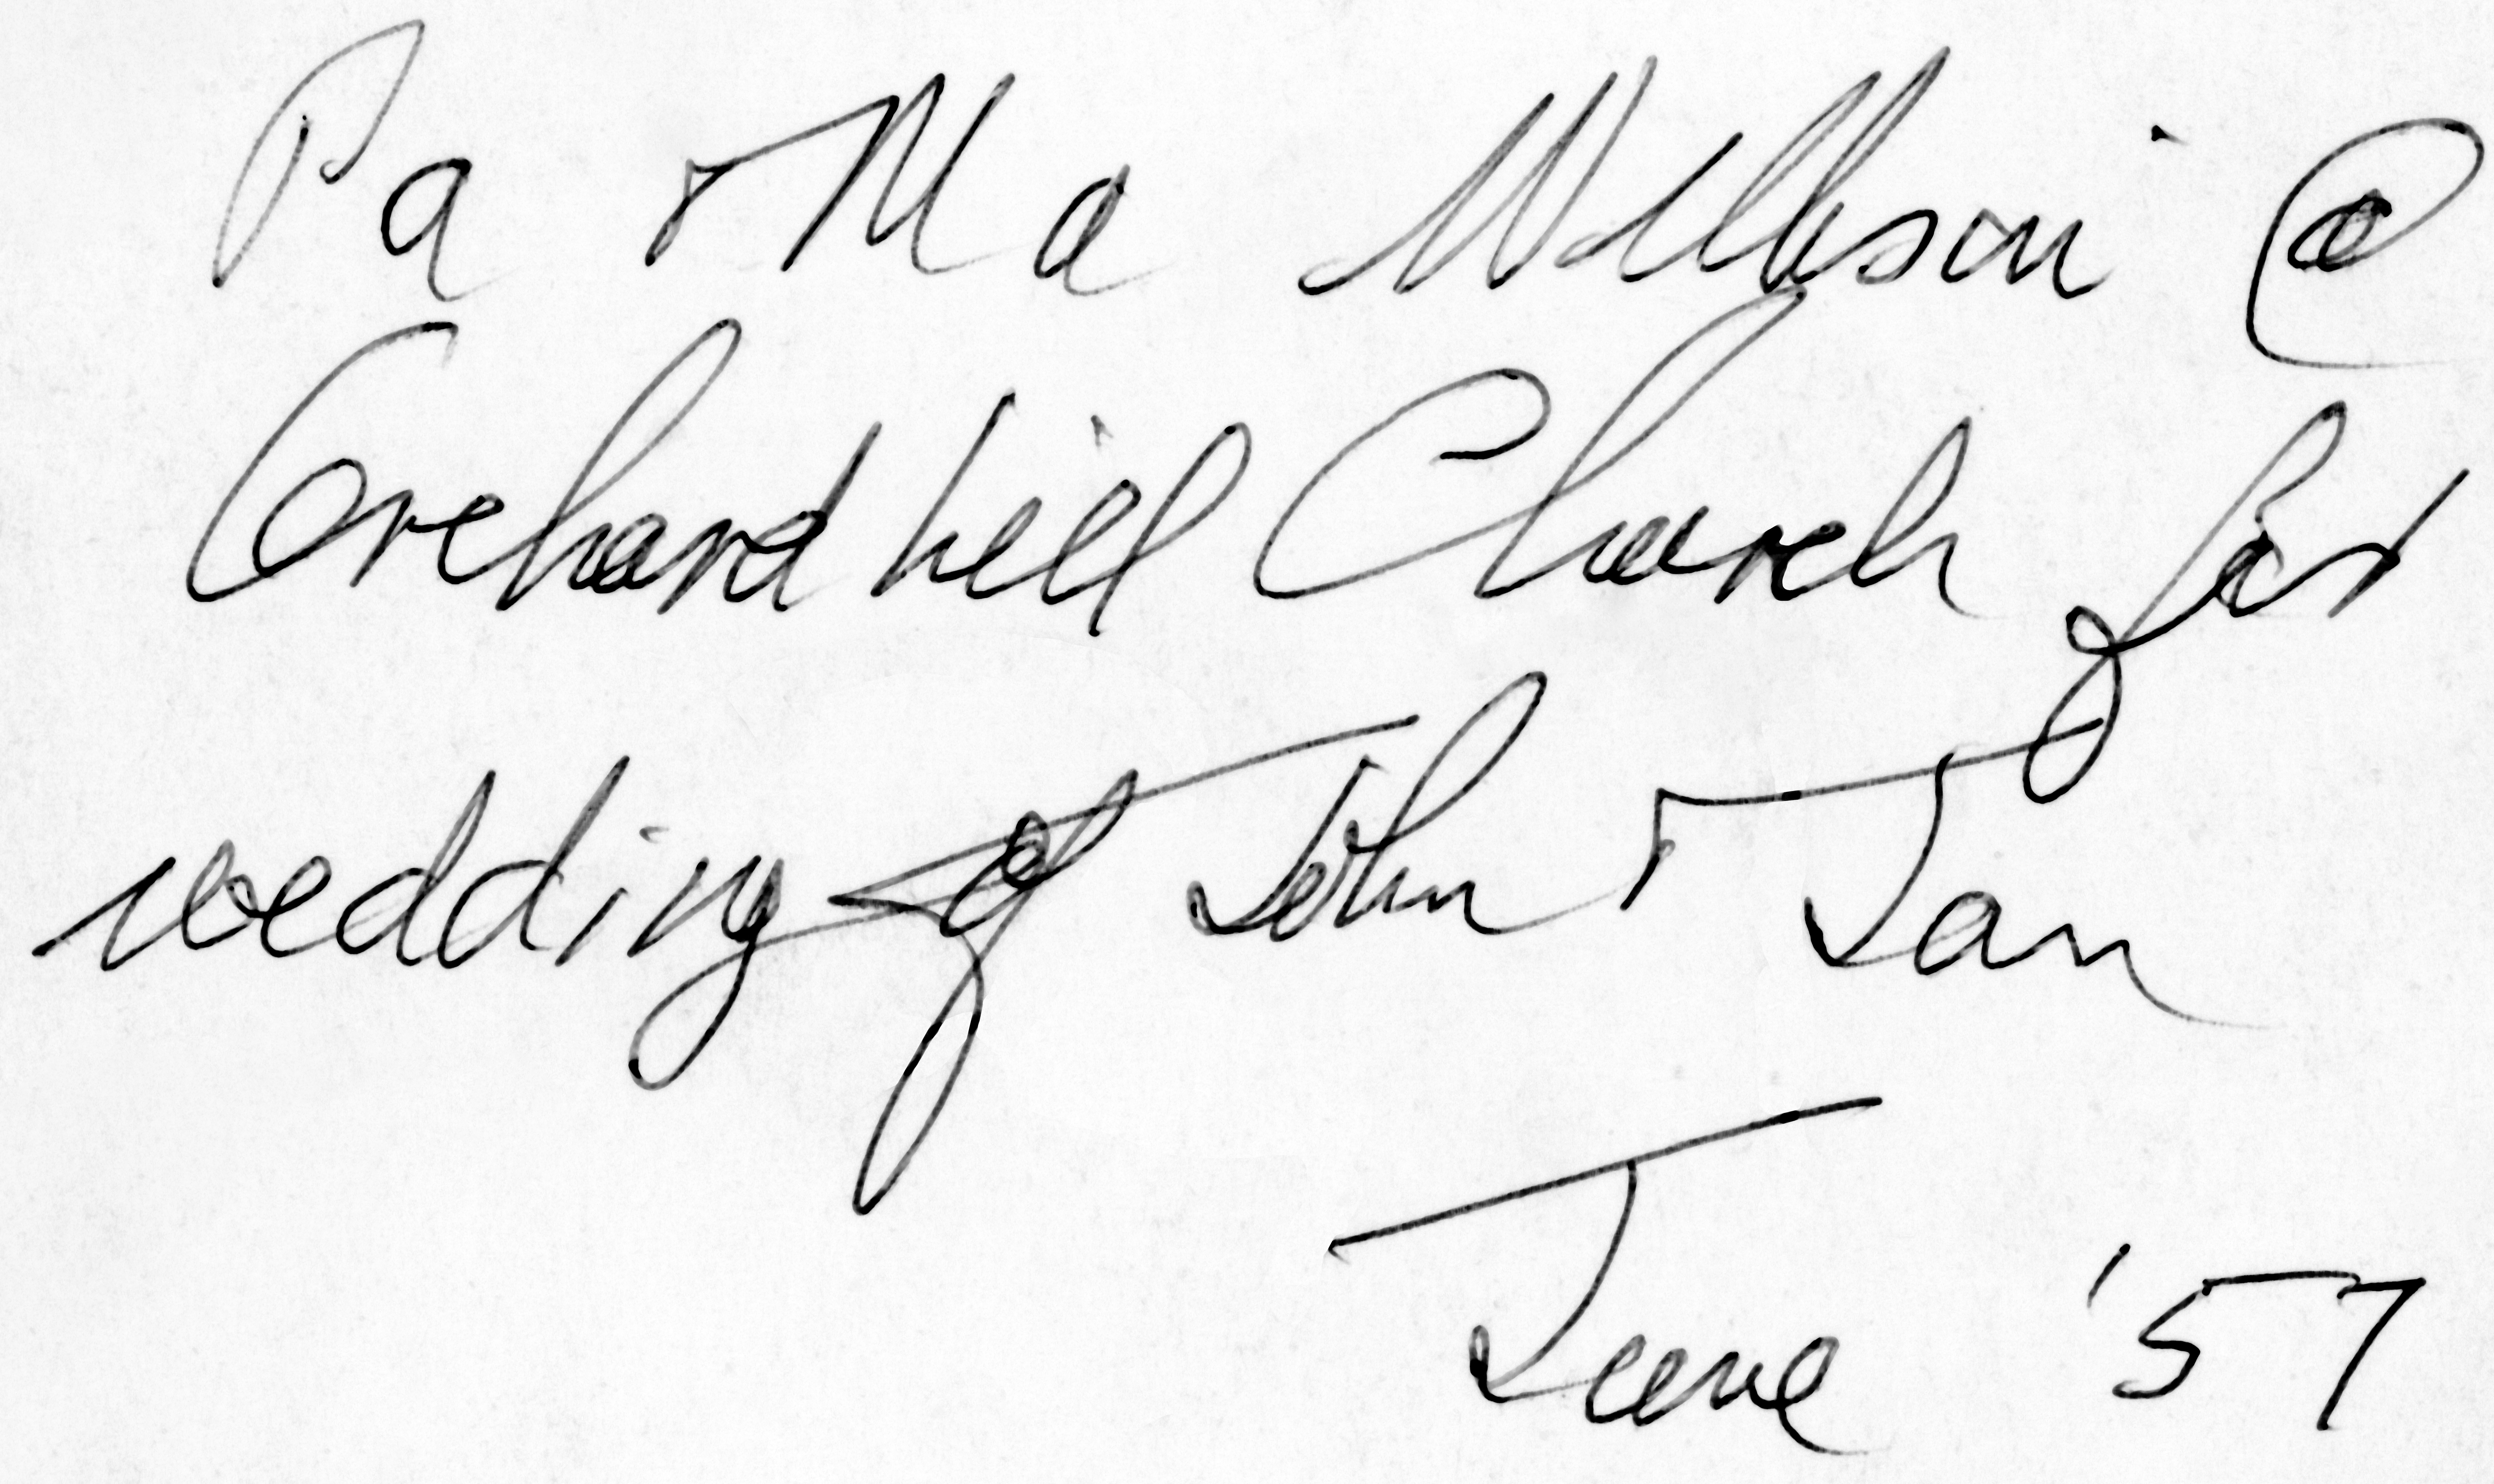 Pa & Ma @
Orchard hill Church for
wedding of John & Jan
June '57